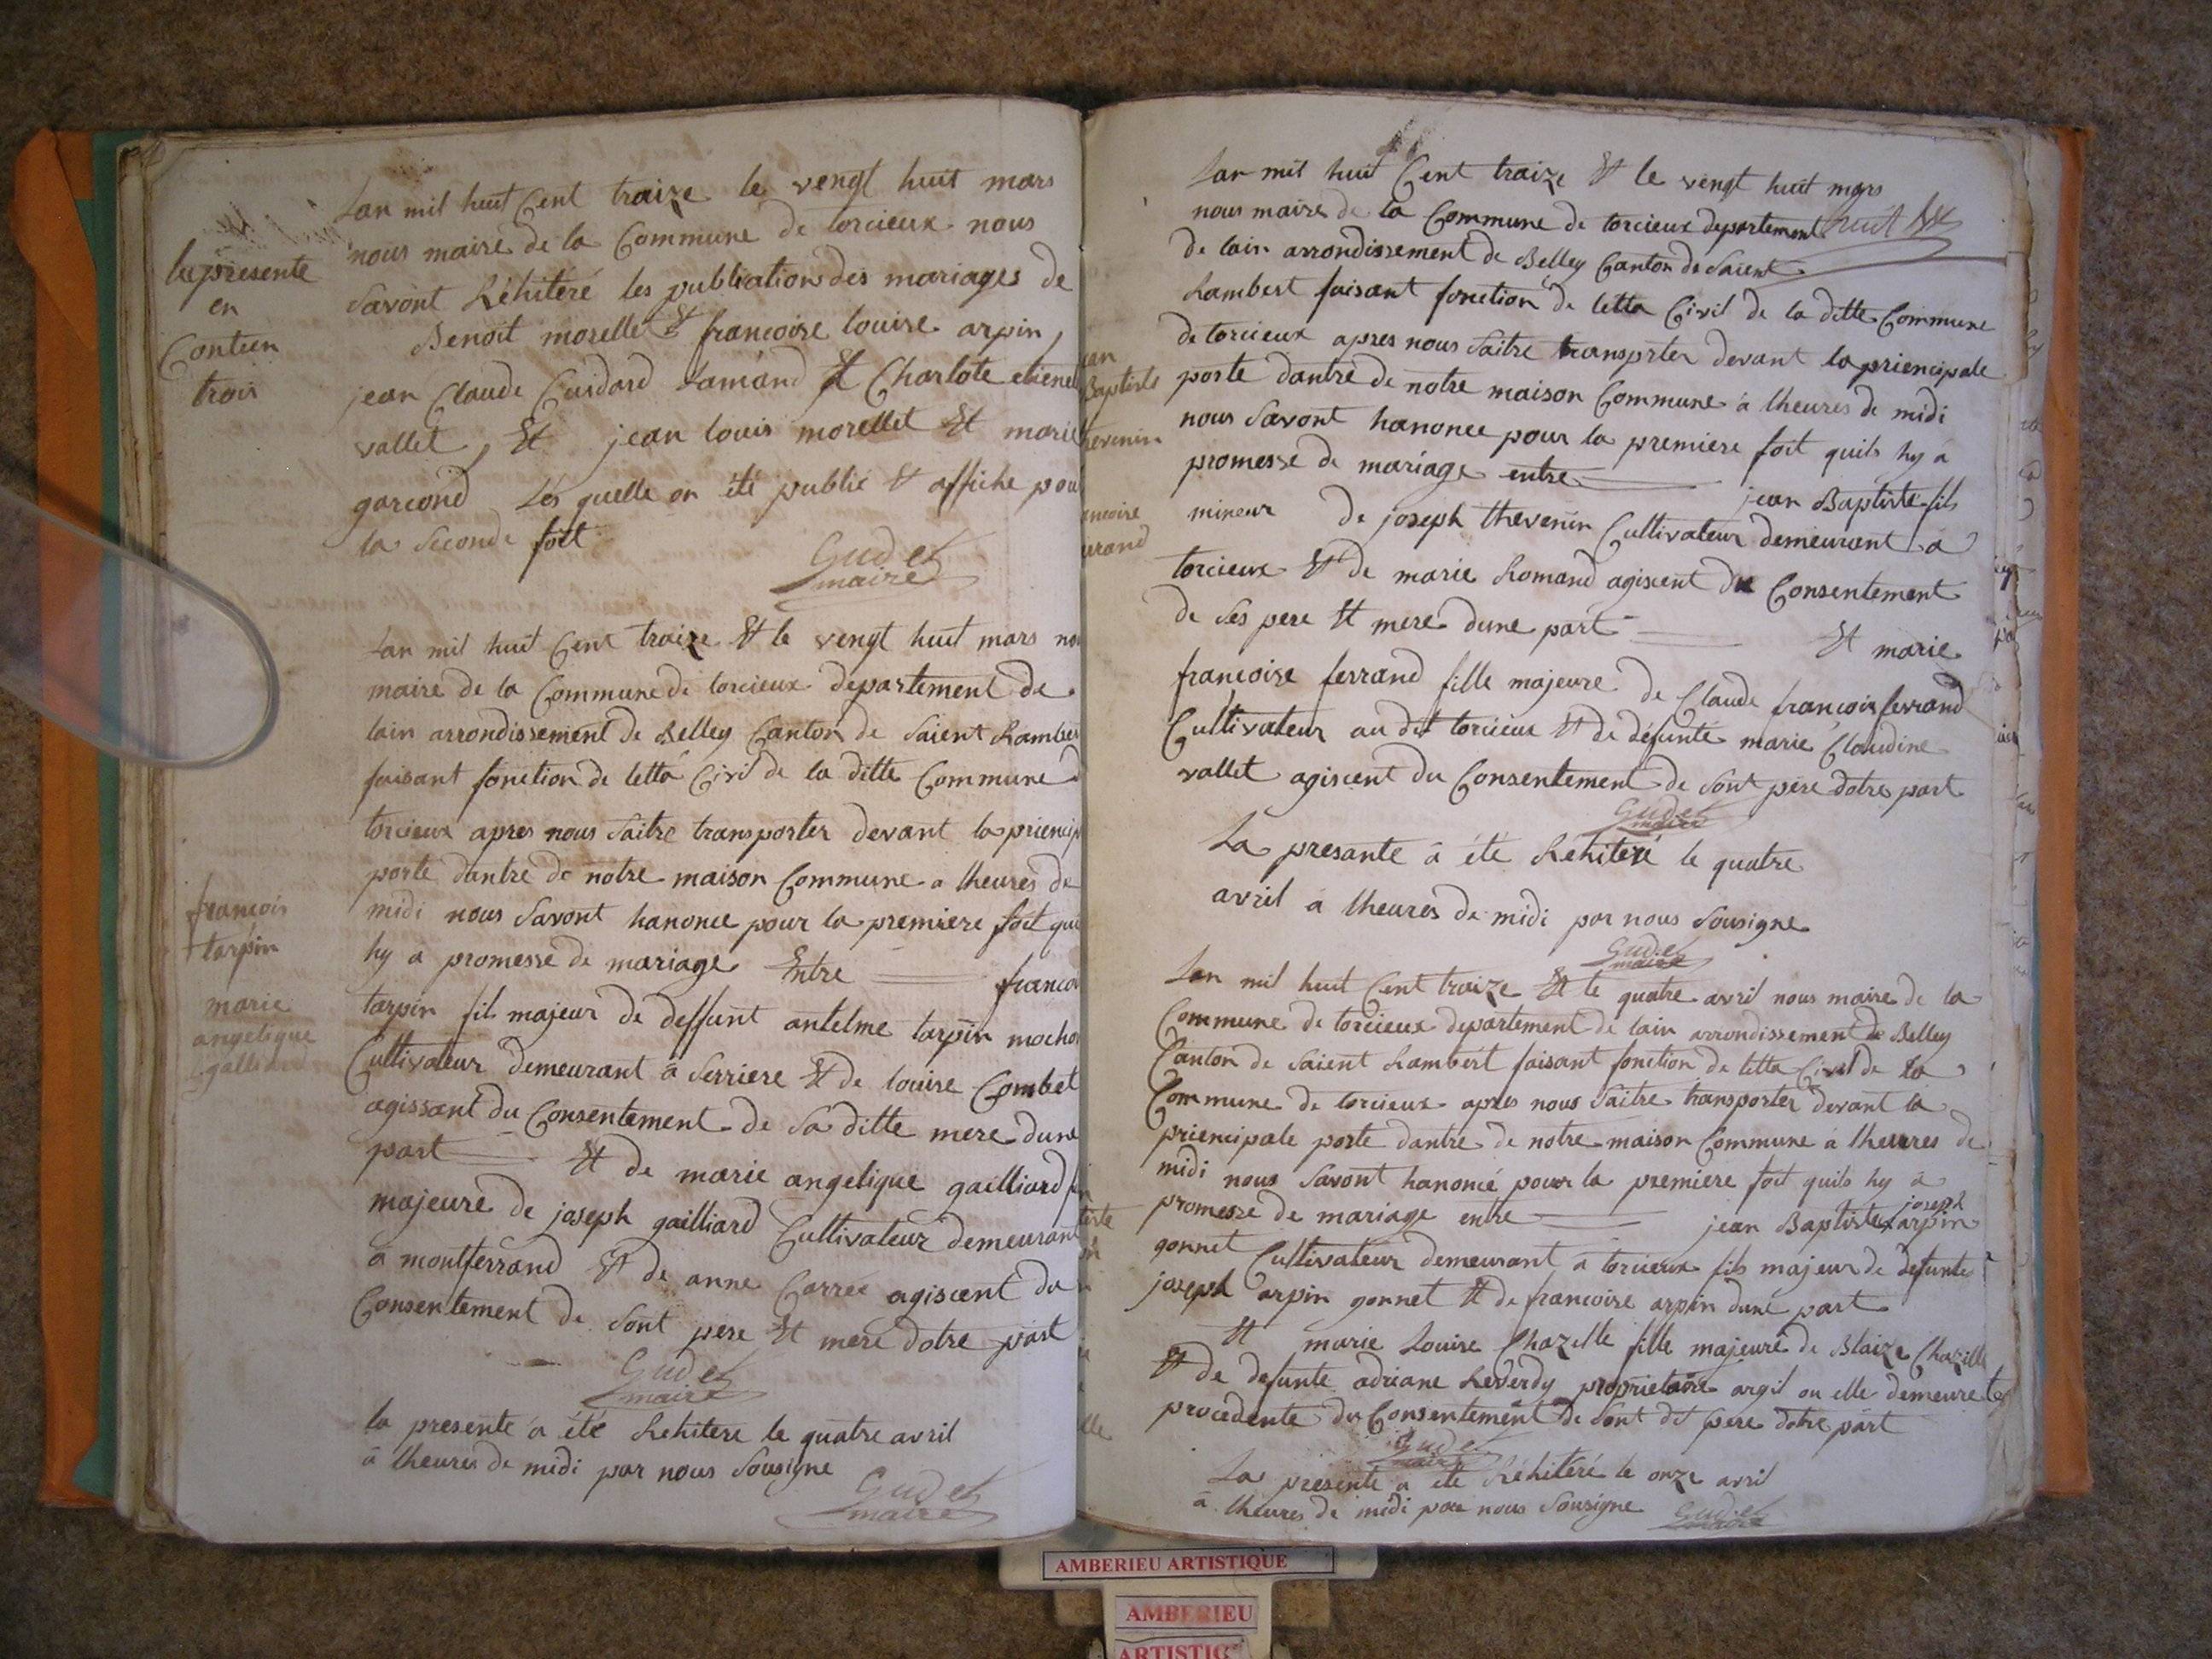 la presente
en
Contien
trois
Lan mil huit Cent traize le vengt huit mars
nous maire de la Commune de torcieux nous
savont Réhitéré les publication des mariages de
Benoit morellet Et francoise louise arpin,
jean Claude Cuidard Lamand Et Charlote etiene
vallet, Et jean louis morellet Et marie
garcond Lés quelle on été publié Et affiche pou
la seconde foit
Gudet
maire
Lan mil huit Cent traize Et le vengt huit mars no
maire de la Commune de torcieux departement de
lain arrondissement de Belley Canton de saient Ramber
faisant fonction de letta Civil de la ditte Commune d
torcieux apres nous saitre transporter devant la priencip
porte dantré de notre maison Commune a lheures de
midi nous savont hanoncé pour la premiere foit qui
hy a promesse de mariage Entre francoi
francois
tarpin
marie
angelique
galliard
tarpin fils majeur de deffunt antelme tarpin mochon
Cultivateur demeurant à serriere Et de louise Combet
agissant du Consentement de sa ditte mere dune
part Et de marie angelique gailliard fi
majeure de joseph gailliard Cultivateur demeurant
a montferrand Et de anne Carree agiscent du
Consentement de sont pere Et mere dotre part
Gudet
maire
la presente a été Rehitere le quatre avril
à lheures de midi par nous sousigne
Gudet
maire
Lan mil huit Cent traize Et le vengt huit mars
nous maire de la Commune de torcieux departement
huit
de lain arrondissement de Belley Canton de saient
Rambert faisant fonction de letta Civil de la ditte Commune
de torcieux apres nous saitre transporter devant la priencipale
porte dantré de notre maison Commune à lheures de midi
nous savont hanonce pour la premiere foit quils hy a
promesse de mariage entre jean Baptiste fils
ean
Baptiste
hevenin
ancoise
errand
mineur de joseph thevenin Cultivateur demeurant à
torcieux Et de marie Romand agiscent du Consentement
de ses pere Et mere dune part Et marie
francoise ferrand fille majeure de Claude francois ferrand
Cultivateur au dit torcieux Et de défunte marie Claudine
vallet agiscent du Consentement de sont père dotre part
Gudet
maire
La presante à été Rehiteré le quatre
avril à lheures de midi par nous sousigne
Gudet
maire
Lan mil huit Cent traize Et le quatre avril nous maire de la
Commune de torcieux departement de lain arrondissement de Belley
Canton de saient Rambert faisant fonction de letta Civil de la
Commune de torcieux apres nous saitre transporter devant la
priencipale porte dantré de notre maison Commune à lheures de
midi nous savont hanoncé pour la premiere foit quils hy à
promesse de mariage entre jean Baptiste joseph arpin
gonnet Cultivateur demeurant à torcieux fils majeur de defunt
joseph arpin gonnet Et de francoise arpin dune part
Et marie Louise Chazelle fille majeure de Blaize Chazille
Et de defunte adriane Reverdy proprietaire argil ou elle demeure
procedente du Consentement de sont dit pere dotre part
Gudet
maire
La presente a été Réhitéré le onze avril
à lheures de midi par nous sousigne
Gudet
maire
AMBERIEU ARTISTIQUE
AMBERIEU
ARTISTIQ